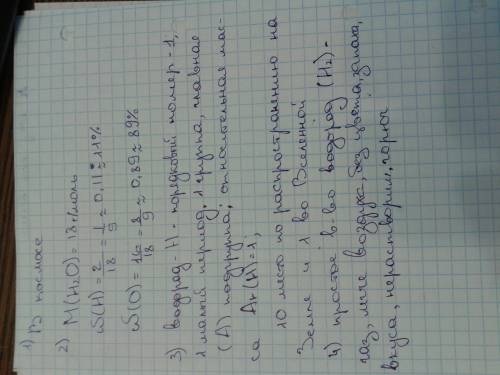 1) В космосе
2) M(H₂O) = 18 г/моль
ω(H) = 2/18 = 1/9 ≈ 0,11 ≈ 11%
ω(O) = 16/18 = 8/9 ≈ 0,89 ≈ 89%
3) водород - H - порядковый номер - 1,
1 малый период, 1 группа, главная
(A) подгруппа; относительная мас-
са Ar(H) = 1;
10 место по распространению на
Земле и 1 во Вселенной
4) простое в-во водород (H₂) -
газ, легче воздуха, без цвета, запаха,
вкуса, нерастворим, горюч